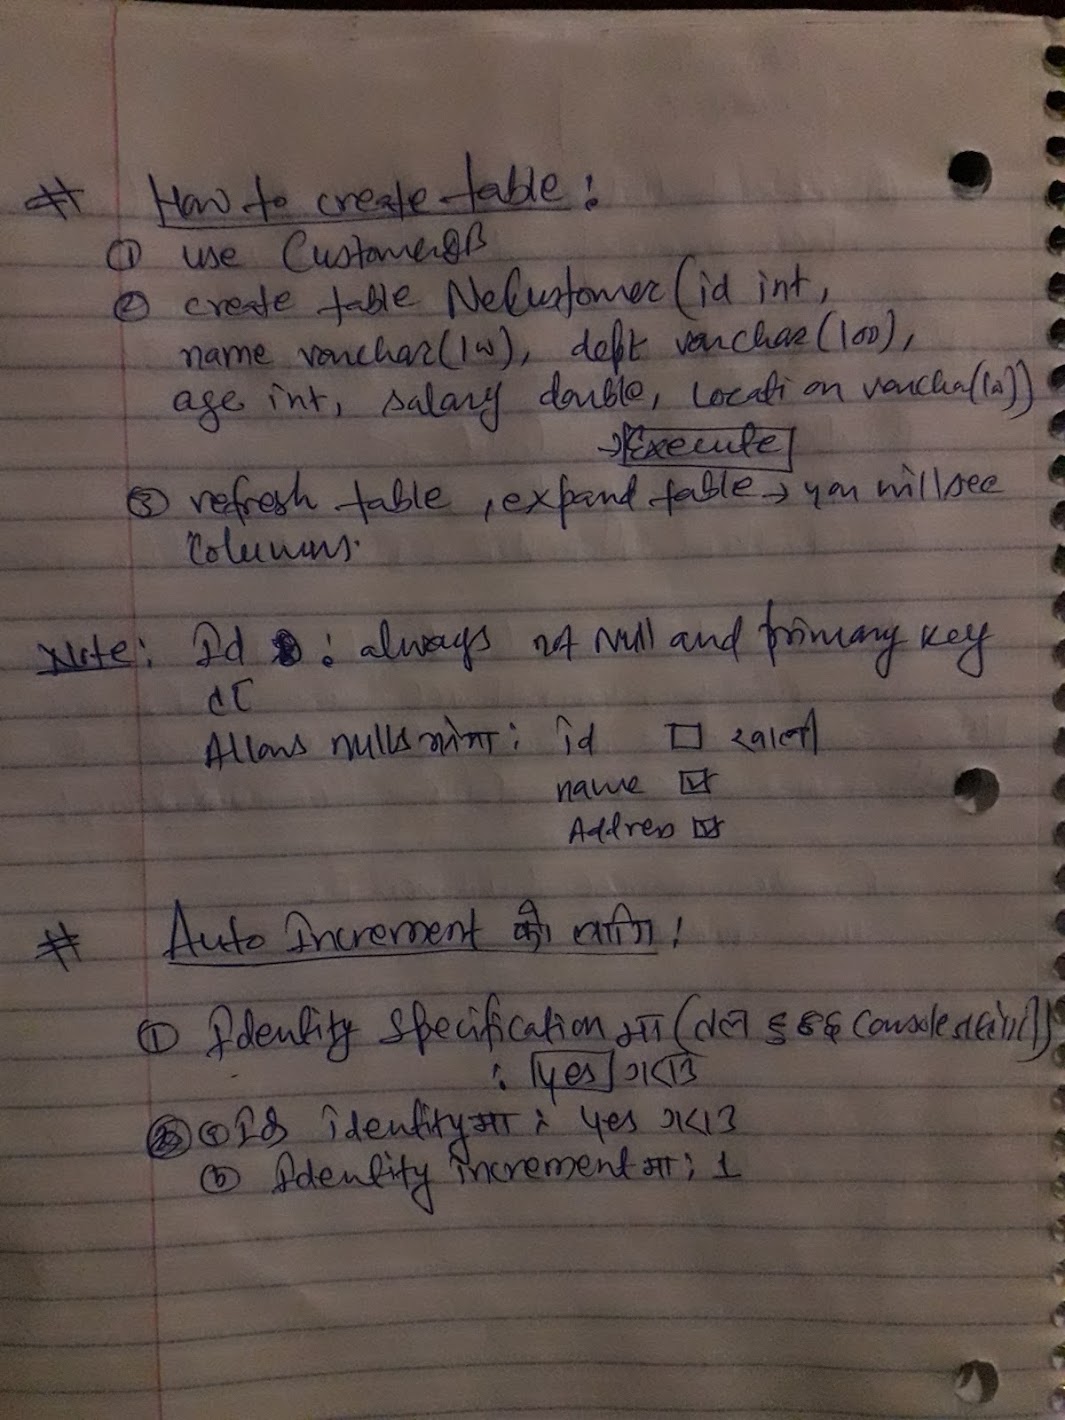 # How to create table :
① use CustomerDB
② create table NeCustomer (id int,
name varchar(100), dept varchar(100),
age int, salary double, Location varchar(100))
→ Execute
③ refresh table , expand table → you will see
Columns.
Note: Id : always not Null and primary key
Allows nulls : id ☐ खाली
name ☑
Address ☑
# Auto Increment को लागि !
① Identity Specification मा ( Console
: Yes गर्ने
ⓐ Is identity मा : Yes गर्ने
ⓑ Identity increment मा : 1